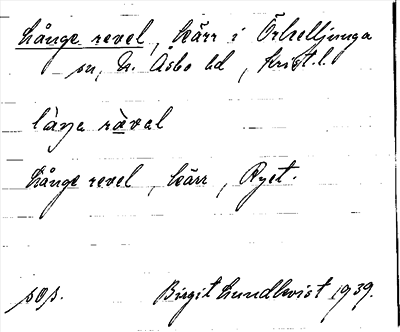 Långe revel, kärr i Örkelljunga
sn, N. Åsbo hd, Krist. l.
låŋa rävəl
Långe revel, kärr, Ryet.
sos.
Birgit Lundkvist 1939.